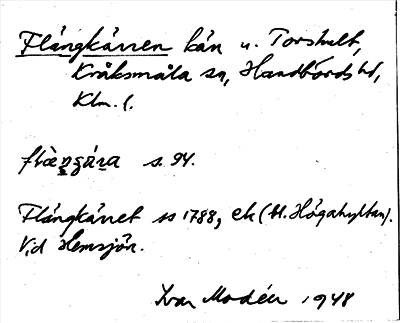 Flångkärren kän u. Torshult,
Kråksmåla sn, Handbörds hd,
Klm. l.
s. 94.
Flångkärret ss 1788, ek (bl. Högahyltan).
Vid Hemsjön.
Ivar Modéer 1948